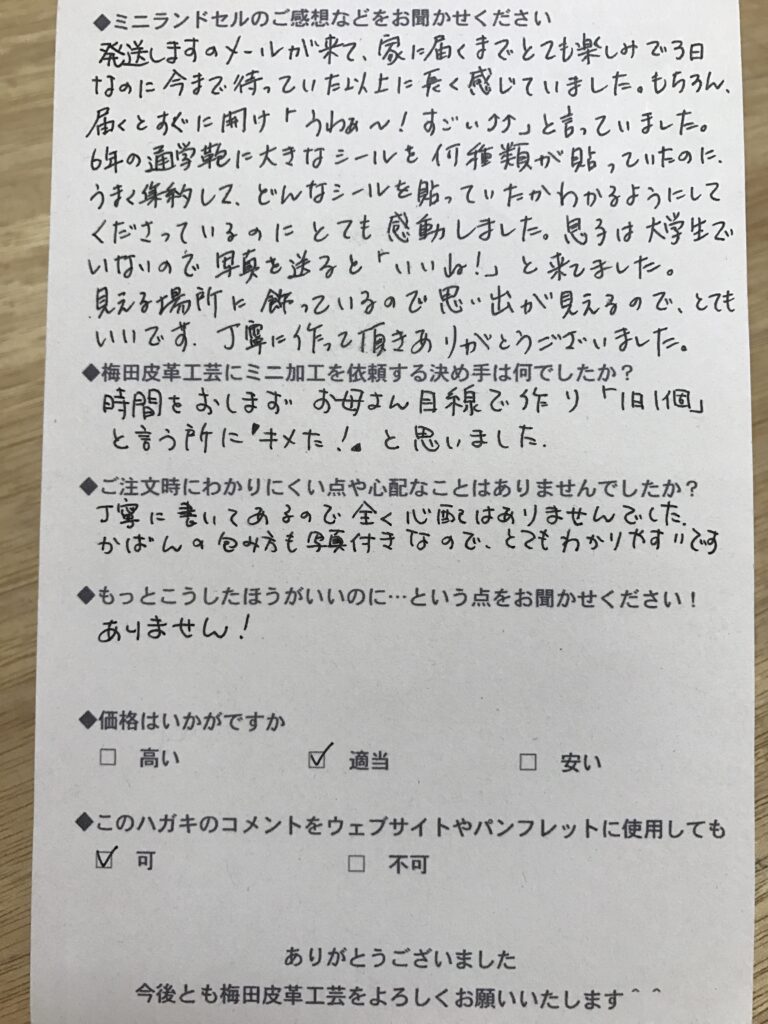 ◆ミニランドセルのご感想などをお聞かせください
発送しますのメールが来て、家に届くまでとても楽しみで3日
なのに今まで待っていた以上に長く感じていました。もちろん、
届くとすぐに開け「うわぁ〜!すごい↑↑」と言っていました。
6年の通学鞄に大きなシールを何種類が貼っていたのに、
うまく集約して、どんなシールを貼っていたかわかるようにして
くださっているのにとても感動しました。息子は大学生で
いないので写真を送ると「いいね!」と来てました。
見える場所に飾っているので思い出が見えるので、とても
いいです。丁寧に作って頂きありがとうございました。
◆梅田皮革工芸にミニ加工を依頼する決め手は何でしたか?
時間をおしまず お母さん目線で作り「1日1個」
と言う所に"キメた!"と思いました.
◆ご注文時にわかりにくい点や心配なことはありませんでしたか?
丁寧に書いてあるので全く心配はありませんでした.
かばんの包み方も写真付きなので、とてもわかりやすいです
◆もっとこうしたほうがいいのに…という点をお聞かせください!
ありません!
◆価格はいかがですか
□ 高い ☑ 適当 □ 安い
◆このハガキのコメントをウェブサイトやパンフレットに使用しても
☑ 可 □ 不可
ありがとうございました
今後とも梅田皮革工芸をよろしくお願いいたします＾＾